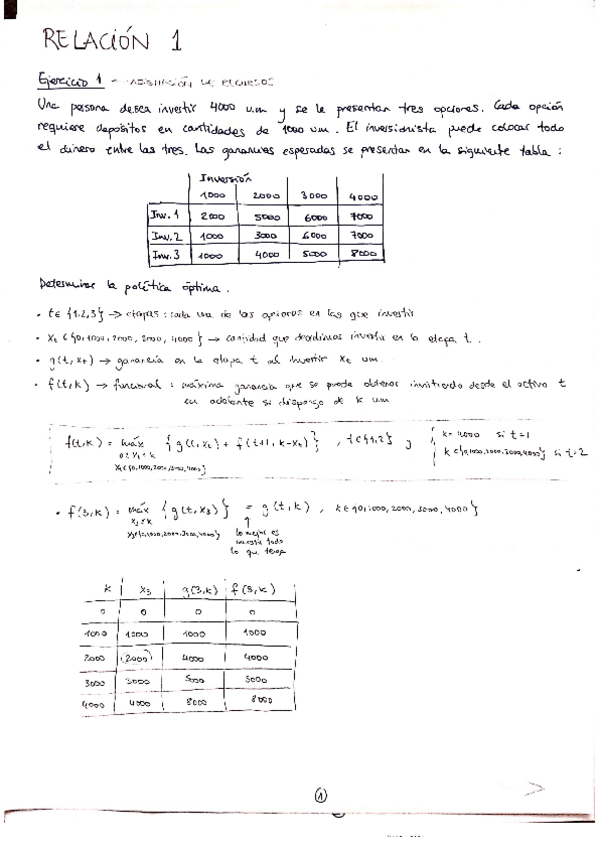 RELACIÓN 1
Ejercicio 1 - ASIGNACIÓN DE RECURSOS
Una persona desea invertir 4000 u.m y se le presentan tres opciones. Cada opción
requiere depósitos en cantidades de 1000 u.m. El inversionista puede colocar todo
el dinero entre las tres. Las ganancias esperadas se presentan en la siguiente tabla:
Inversión
1000 2000 3000 4000
Inv. 1 2000 5000 6000 7000
Inv. 2 1000 3000 6000 7000
Inv. 3 1000 4000 5000 8000
Determinar la política óptima.
• t ∈ {1,2,3} → etapas: cada una de las opciones en las que invertir
• Xt ∈ {0,1000,2000,3000,4000} → cantidad que decidimos invertir en la etapa t.
• g(t,xt) → ganancia en la etapa t al invertir xt um.
• f(t,k) → funcional: máxima ganancia que se puede obtener invirtiendo desde el activo t
en adelante si dispongo de k um
f(t,k) = máx {g(t,xt) + f(t+1, k-xt)}, t∈{1,2} y { k=4000 si t=1
0≤xt≤k k∈{0,1000,2000,3000,4000} si t=2
xt∈{0,1000,2000,3000,4000}
• f(3,k) = máx {g(t,x3)} = g(t,k), k∈{0,1000,2000,3000,4000}
x3≤k ↑
x3∈{0,1000,2000,3000,4000} lo mejor es
invertir todo
lo que tenga
k x3 g(3,k) f(3,k)
0 0 0 0
1000 1000 1000 1000
2000 (2000) 4000 4000
3000 3000 5000 5000
4000 4000 8000 8000
1